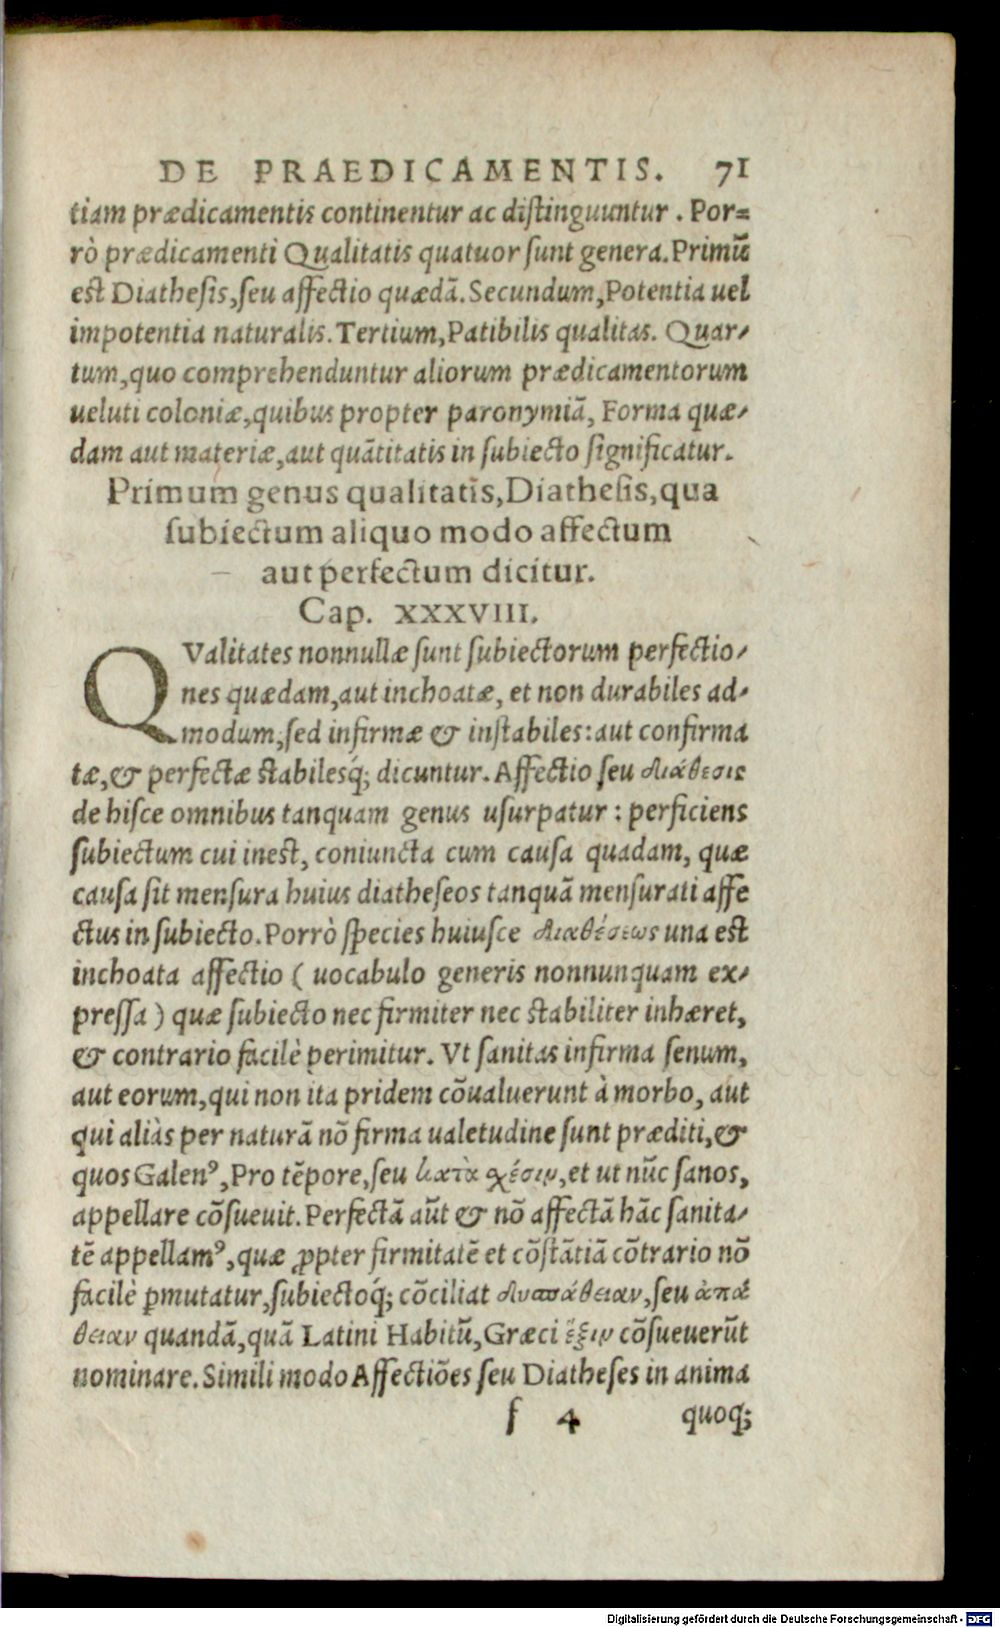 DE PRAEDICAMENTIS. 71
tiam prædicamentis continentur ac distinguuntur. Por=
rò prædicamenti Qualitatis quatuor sunt genera. Primũ
est Diathesis, seu affectio quædã. Secundum, Potentia uel
impotentia naturalis. Tertium, Patibilis qualitas. Quar-
tum, quo comprehenduntur aliorum prædicamentorum
ueluti coloniæ, quibus propter paronymiã, Forma quæ-
dam aut materiæ, aut quãtitatis in subiecto significatur.
Primum genus qualitatis, Diathesis, qua
subiectum aliquo modo affectum
aut perfectum dicitur.
Cap. XXXVIII.
QValitates nonnullæ sunt subiectorum perfectio-
nes quædam, aut inchoatæ, et non durabiles ad-
modum, sed infirmæ & instabiles: aut confirma
tæ, & perfectæ stabilesq́; dicuntur. Affectio seu διάθεσις
de hisce omnibus tanquam genus usurpatur: perficiens
subiectum cui inest, coniuncta cum causa quadam, quæ
causa sit mensura huius diatheseos tanquã mensurati affe
ctus in subiecto. Porrò species huiusce διαθέσεως una est
inchoata affectio ( uocabulo generis nonnunquam ex-
pressa ) quæ subiecto nec firmiter nec stabiliter inhæret,
& contrario facilè perimitur. Vt sanitas infirma senum,
aut eorum, qui non ita pridem cõualuerunt à morbo, aut
qui aliàs per naturã nõ firma ualetudine sunt præditi, &
quos Galenꝰ, Pro tẽpore, seu κατὰ χέσιν, et ut nũc sanos,
appellare cõsueuit. Perfectã aũt & nõ affectã hãc sanita-
tẽ appellamꝰ, quæ ꝓpter firmitatẽ et cõstãtiã cõtrario nõ
facilè ꝑmutatur, subiectoq́; cõciliat δυσπάθειαν, seu ἀπά
θειαν quandã, quã Latini Habitũ, Græci ἕξιν cõsueuerũt
nominare. Simili modo Affectiões seu Diatheses in anima
f 4 quoq;
Digitalisierung gefördert durch die Deutsche Forschungsgemeinschaft - DFG